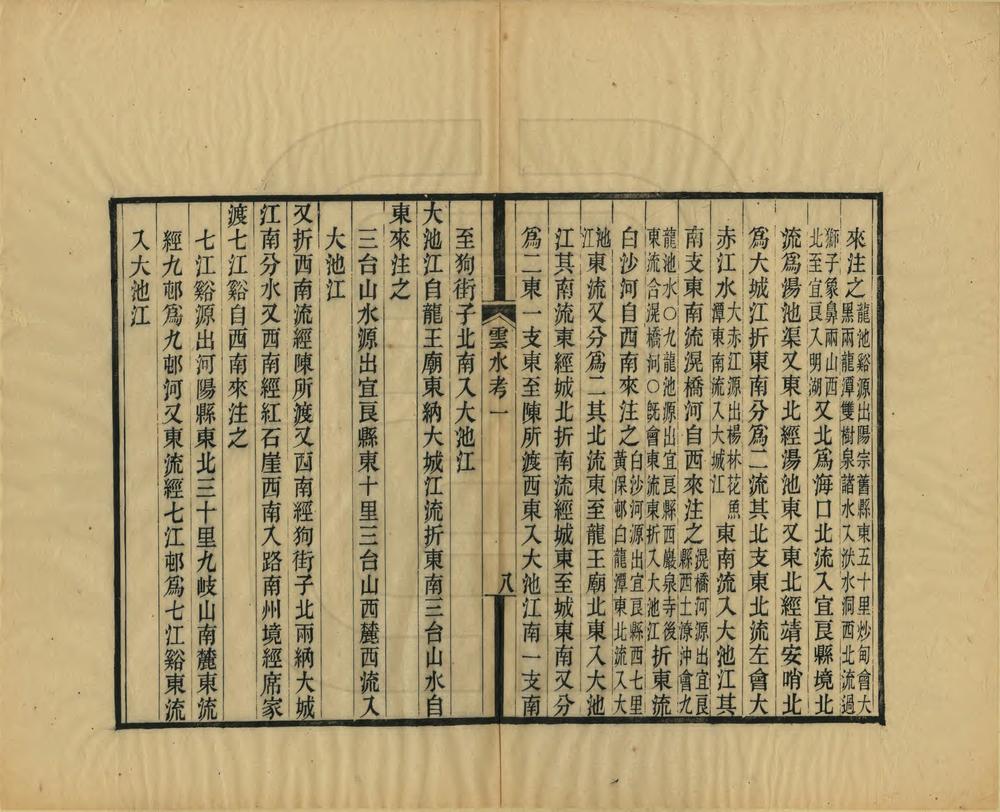 來注之龍池谿源出陽宗舊縣東五十里炒甸會大黑兩龍潭雙樹泉諸水又洑水洞西北流過
獅子象鼻兩山西北至宜良又明湖又北爲海口北流入宜良縣境北
流爲湯池渠又東北經湯池東又東北經靖安哨北
爲大城江折東南分爲二流其北支東北流左會大
赤江水大赤江源出楊林花魚潭東南流入大城江東南流入大池江其
南支東南流滉橋河自西來注之滉橋河源出宜良縣西土潦沖會九
龍池水〇九龍池源出宜良縣西巖泉寺後東流合滉橋河〇旣會東流東折入大池江折東流
白沙河自西南來注之白沙河源出宜良縣西七里黃保邨白龍潭東北流入大
池江東流又分爲二其北流東至龍王廟北東入大池
江其南流東經城北折南流經城東至城東南又分
爲二東一支東至陳所渡西東入大池江南一支南
雲水考一
八
至狗街子北南入大池江
大池江自龍王廟東納大城江流折東南三台山水自
東來注之
三台山水源出宜良縣東十里三台山西麓西流入
大池江
又折西南流經陳所渡又西南經狗街子北兩納大城
江南分水又西南經紅石崖西南入路南州境經席家
渡七江谿自西南來注之
七江谿源出河陽縣東北三十里九岐山南麓東流
經九邨爲九邨河又東流經七江邨爲七江谿東流
又入大池江